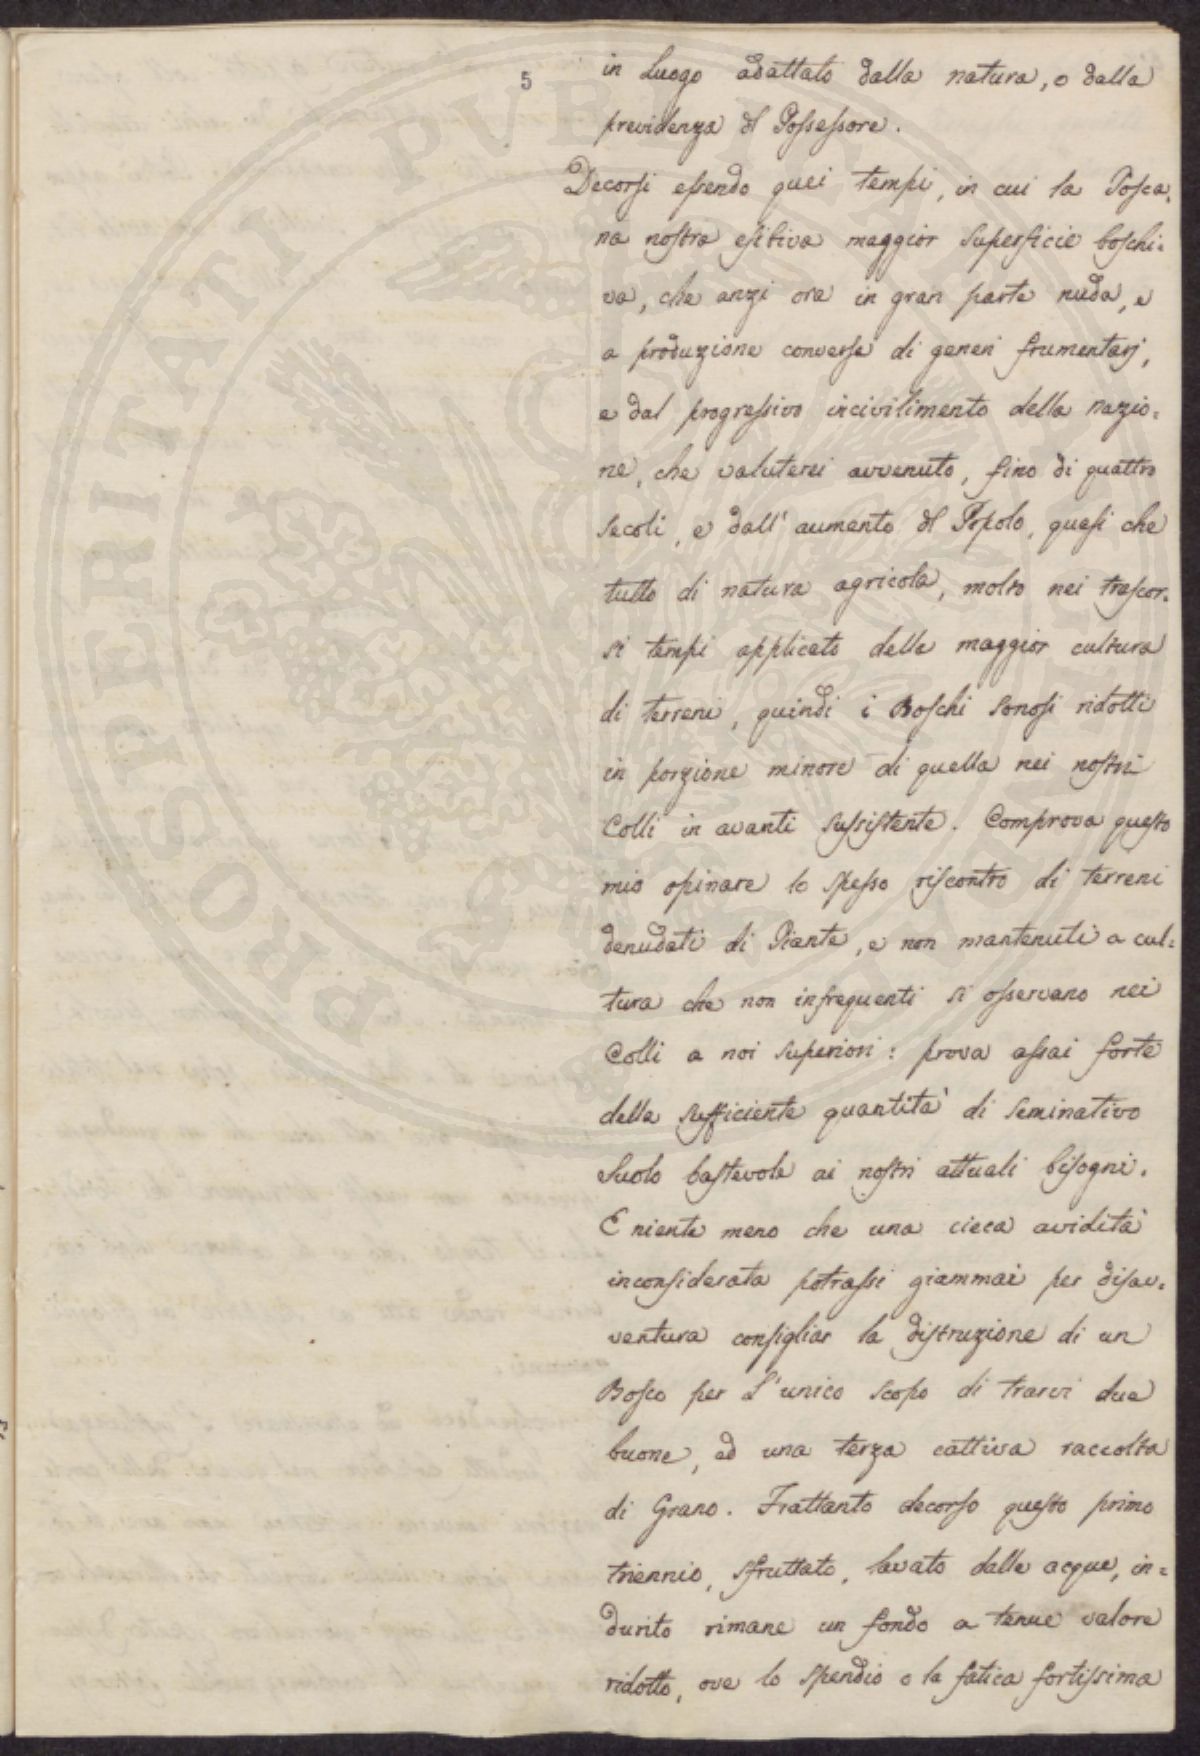 5
in Luogo adattato dalla natura, o dalla
previdenza dl Possessore.
Decorsi essendo quei tempi, in cui la Tosca=
na nostra esibiva maggior superficie boschi=
va, che anzi ora in gran parte nuda, e
a produzione conversa di generi frumentarj,
e dal progressivo incivilimento della nazio=
ne, che valuterei avvenuto, fino di quattro
secoli, e dall' aumento dl Popolo, quasi che
tutto di natura agricola, molto nei trascor=
si tempi applicato della maggior cultura
di terreni, quindi i Boschi sonosi ridotti
in porzione minore di quella nei nostri
Colli in avanti sussistente. Comprova questo
mio opinare lo spesso riscontro di terreni
denudati di Piante, e non mantenuti a cul=
tura che non infrequenti si osservano nei
Colli a noi superiori: prova assai forte
della sufficiente quantità di seminativo
suolo bastevole ai nostri attuali bisogni.
E niente meno che una cieca avidità
inconsiderata potrassi giammai per disav=
ventura consigliar la distruzione di un
Bosco per l'unico scopo di trarvi due
buone, ed una terza cattiva raccolta
di Grano. Frattanto decorso questo primo
triennio, sfruttato, lavato dalle acque, in=
durito rimane un fondo a tenue valore
ridotto, ove lo spendio o la fatica fortissima
PROSPERITATI PVBLICAE